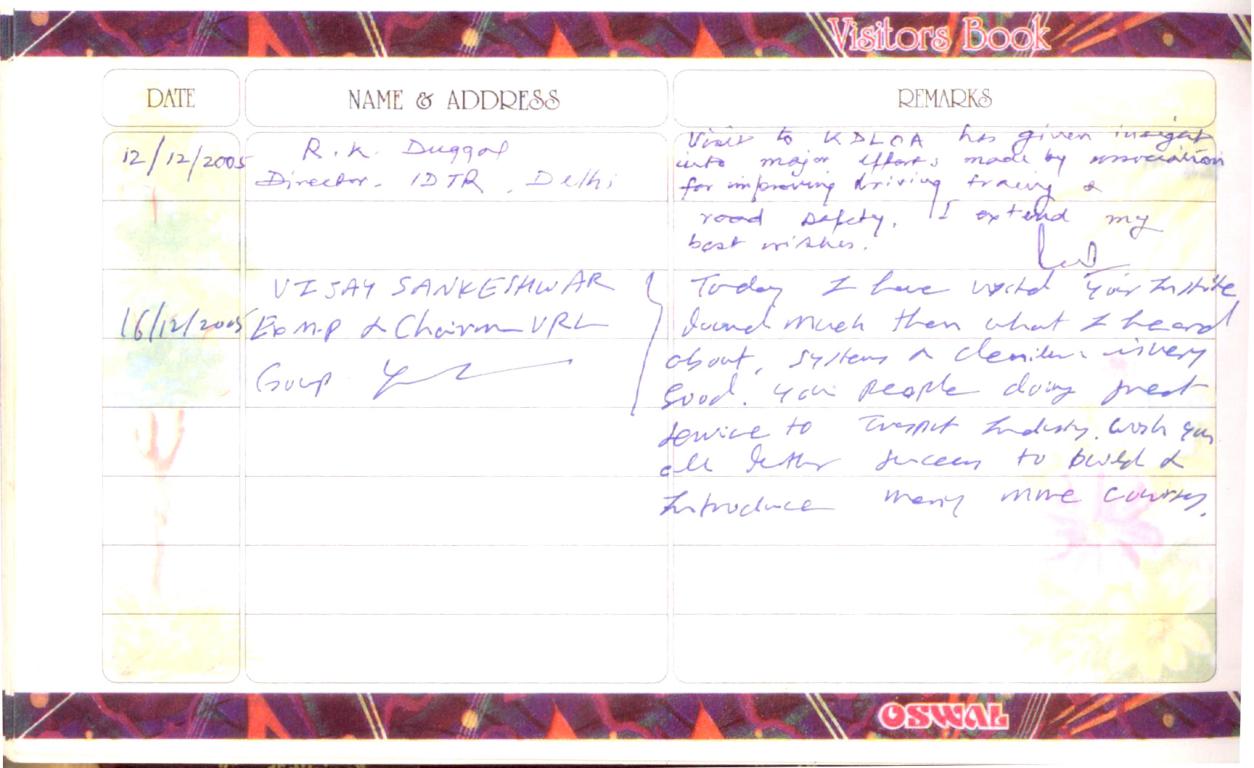 Visitors Book
DATE
NAME & ADDRESS
REMARKS
12/12/2005
R.K. Duggal
Director. IDTR, Delhi
Visit to KDLOA has given insight
into major efforts made by association
for improving driving &
road safety. I extend my
best wishes.
16/12/2005
VIJAY SANKESHWAR
Ex M.P & Chairman VRL
Group
Today I have your
found much then what I heard
about, systems & is very
Good. you people doing great
service to Industry. wish you
all success to build &
Introduce many more courses.
OSWAL